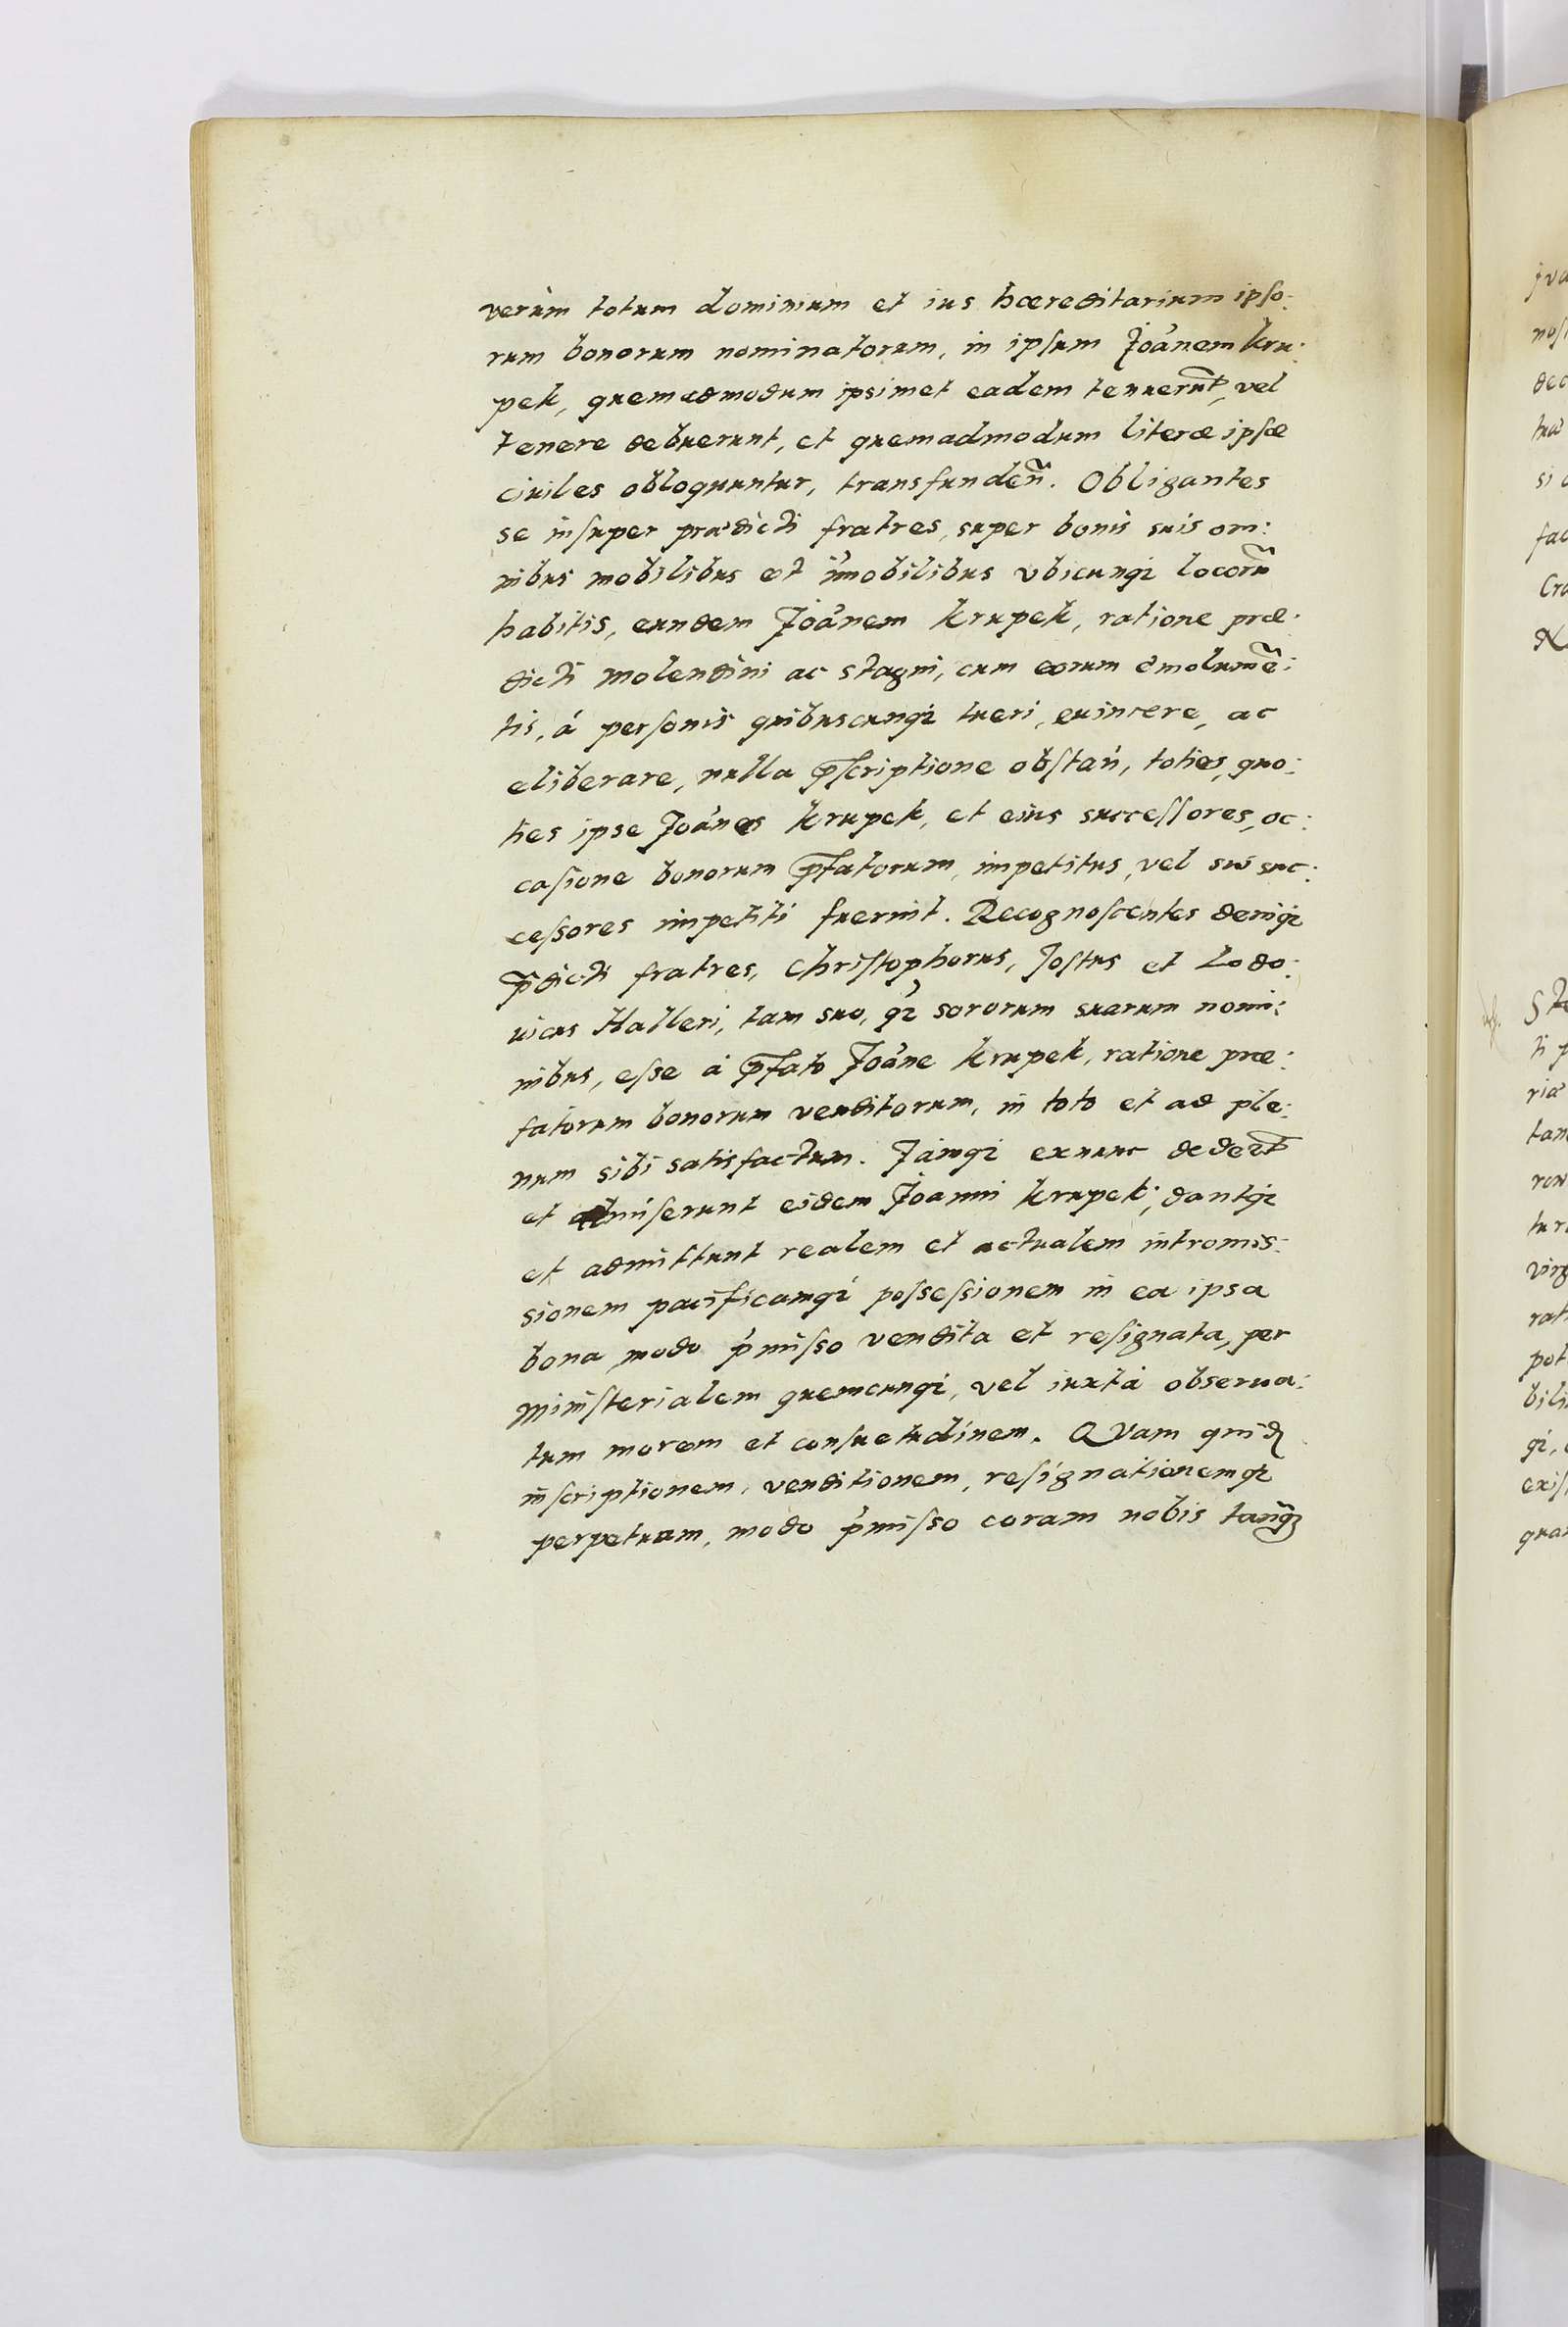 verùm totum dominium et ius hæreditarium ipso:
rum bonorum nominatorum, in ipsum Joãnem Kru:
pek, quemadmodum ipsimet eadem tenuerũt, vel
tenere debuerunt, et quemadmodum literæ ipsæ
ciuiles obloquuntur, transfundeñ. Obligantes
se insuper prædicti fratres, super bonis suis om:
nibus mobilibus et im̃obilibus vbicunqȝ locorũ
habitis, eundem Joãnem Krupek, ratione præ:
dicti molendini ac stagni, cum eorum emolumẽ:
tis, à personis quibuscunqȝ tueri, euincere, ac
eliberare, nulla p̃scriptione obstañ, toties, quo:
ties ipse Joãnes Krupek, et eius successores, oc:
casione bonorum p̃fatorum, impetitus, vel sui suc:
cessores impetiti fuerint. Recognoscentes deniqȝ
p̃dicti fratres, Christophorus, Jostus et Lodo:
uicus Halleri, tam suo, q̃ȝ sororum suarum nomi:
nibus, esse à p̃fato Joãne Krupek, ratione præ:
fatorum bonorum venditorum, in toto et ad ple:
num sibi satisfactum. Jamqȝ exnunc dederũt
et admiserunt eidem Joanni Krupek; dantqȝ
et admittunt realem et actualem intromis:
sionem pacificamqȝ possessionem in ea ipsa
bona modo p̃misso vendita et resignata, per
ministerialem quemcunqȝ, vel iuxtà obserua:
tum morem et consuetudinem. QVam quidẽ
inscriptionem, venditionem, resignationemqȝ
perpetuam, modo p̃misso coram nobis tanq̃ȝ